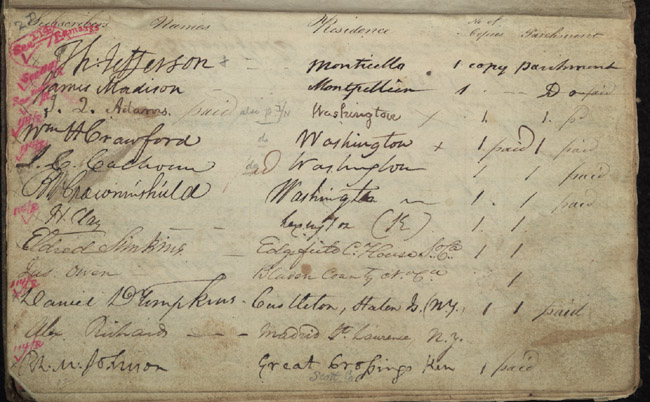 Subscribers Names Residence No of Copies Parchment
See Remarks
Th. Jefferson + - - Monticello 1 copy parchment
James Madison - - Montpellier 1 - - Do paid
J. Q. Adams. paid Washington + 1 1 p
Wm H Crawford do Washington + 1 paid 1 paid
J. C. Calhoun Washington 1 1 paid
B W Crowninshield Washington 1 1 paid
H. Clay Lexington (K) 1 1
Eldred Simkins - Edgefield C. House So. Ca 1 1
Jas Owen Bladen County No. Ca 1
Daniel D Tompkins - Castleton, Staten Is. (N.Y. 1 1 paid
Alex Richards - - - Madrid St. Laurence N.Y.
R. M. Johnson Great Crossings Ken 1 paid
Scott Co